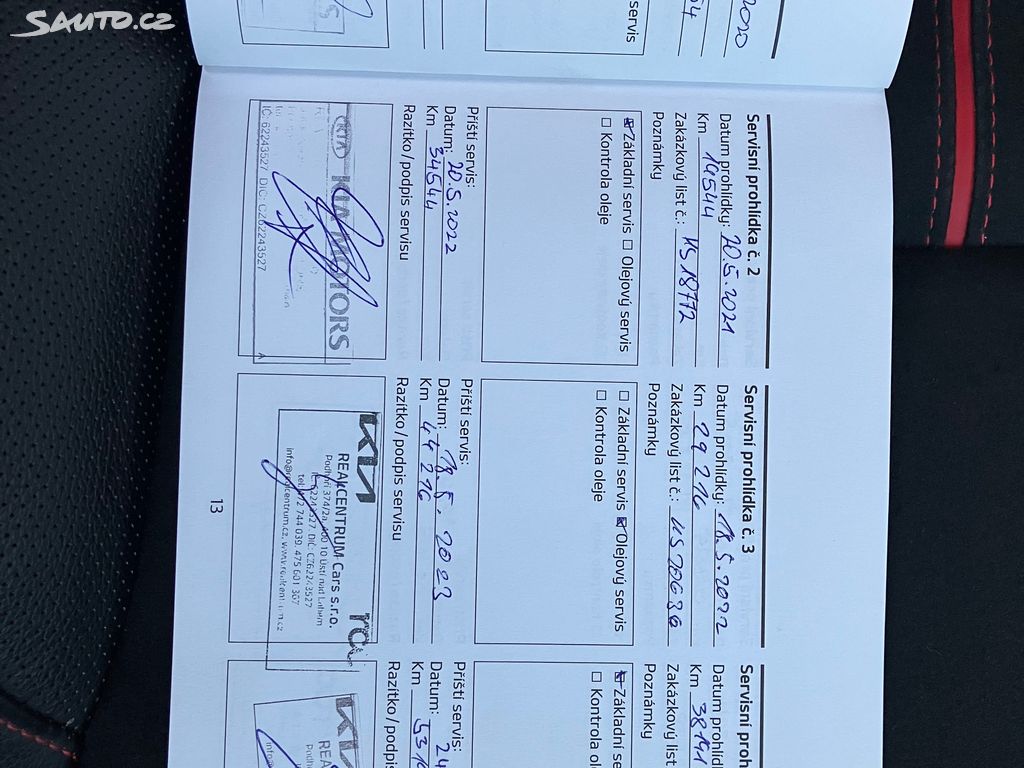 SAUTO.CZ
2020
servis
Servisní prohlídka č. 2
Datum prohlídky: 20.5.2021
Km 19544
Zakázkový list č.: KS18772
Poznámky
Základní servis Olejový servis
Kontrola oleje
Příští servis:
Datum: 20.5.2022
Km 34544
Razítko/podpis servisu
KIA KIA MOTORS
IČ: 62243527 DIČ: CZ62243527
Servisní prohlídka č. 3
Datum prohlídky: 18.5.2022
Km 29216
Zakázkový list č.: KS20636
Poznámky
Základní servis Olejový servis
Kontrola oleje
Příští servis:
Datum: 18.5.2023
Km 44216
Razítko/podpis servisu
KIA
REALCENTRUM Cars s.r.o.
400 10 Ústí nad Labem
DIČ: CZ62243527
13
Servisní proh
Datum prohlíd
Km 38191
Zakázkový list
Poznámky
Základní se
Kontrola ol
Příští servis:
Datum: 24
Km
Razítko/podpis
KIA